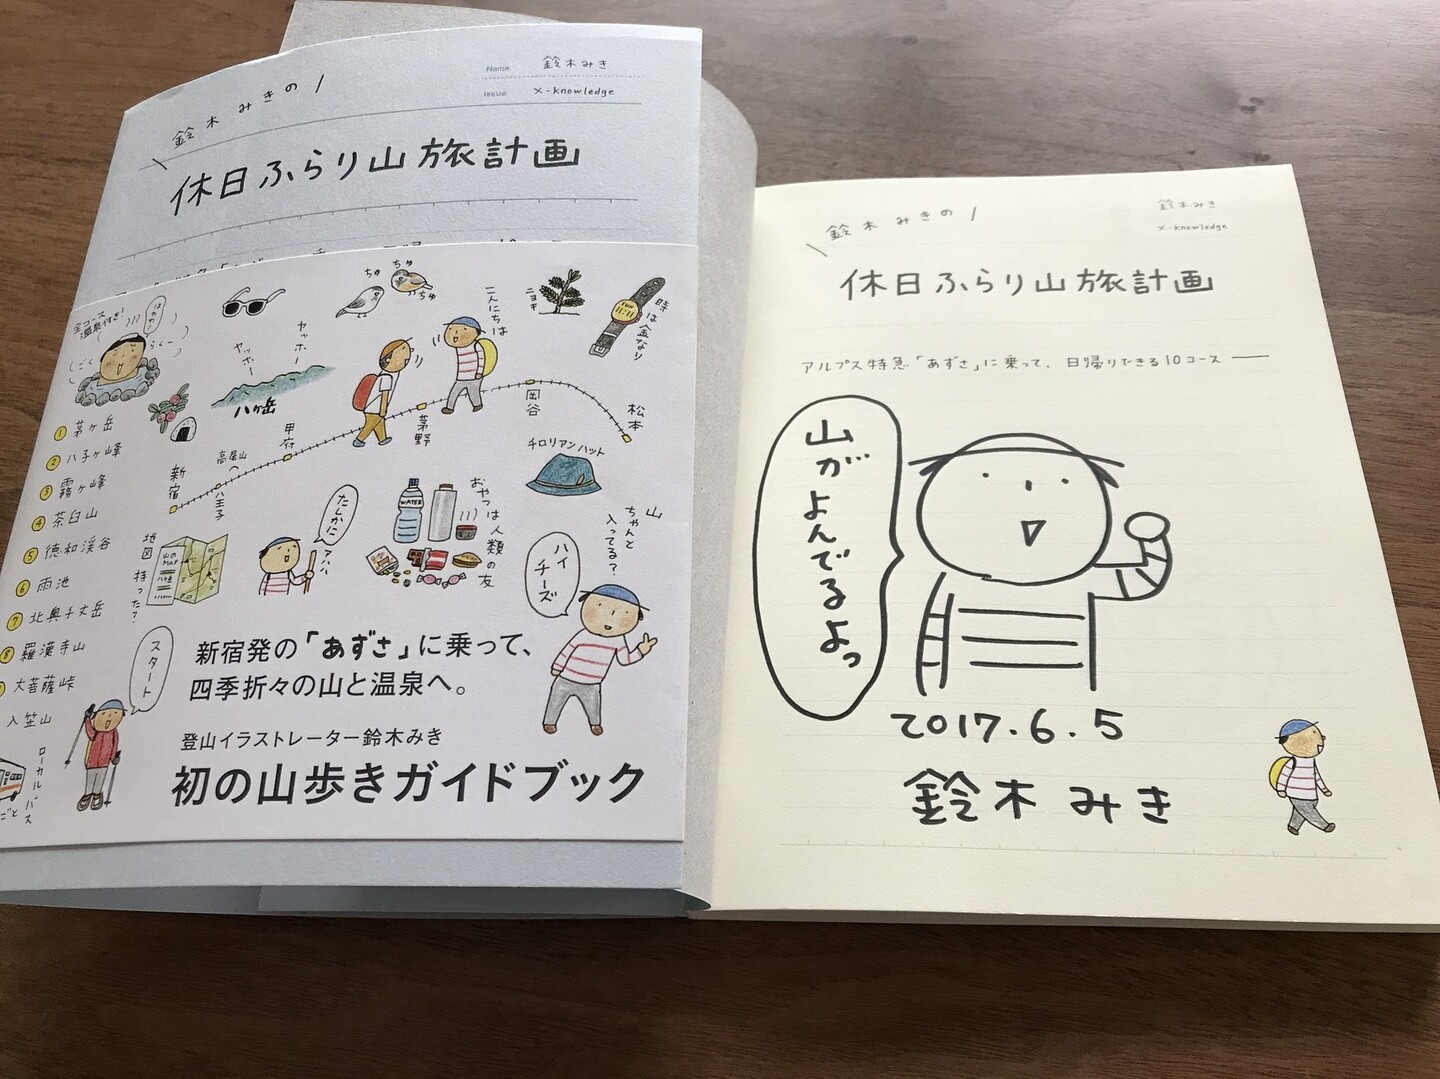 鈴木みきの
Name. 鈴木みき
Issue. X-knowledge
休日ふらり山旅計画
全コース温泉付き!
はのか〜
ごく
らく〜
ちゅ
ちゅ
ちゅ
ヤッホー
ヤッホー
八ヶ岳
こんにちは
ニョキ
時は金なり
1 茅ヶ岳
2 八子ヶ峰
3 霧ヶ峰
4 茶臼山
5 徳和渓谷
6 雨池
7 北奥千丈岳
8 羅漢寺山
大菩薩峠
入笠山
新宿
八王子
高尾山へ
甲府
茅野
岡谷
松本
チロリアンハット
地図持った?
山のMAP
たしかに
アハハ
WATER
おやつは人類の友
山ちゃんと入ってる?
ハイチーズ
スタート
ローカルバス
ごと
新宿発の「あずさ」に乗って、
四季折々の山と温泉へ。
登山イラストレーター鈴木みき
初の山歩きガイドブック
鈴木みきの
鈴木みき
X-knowledge
休日ふらり山旅計画
アルプス特急「あずさ」に乗って、日帰りできる10コース
山がよんでるよっ
2017.6.5
鈴木みき